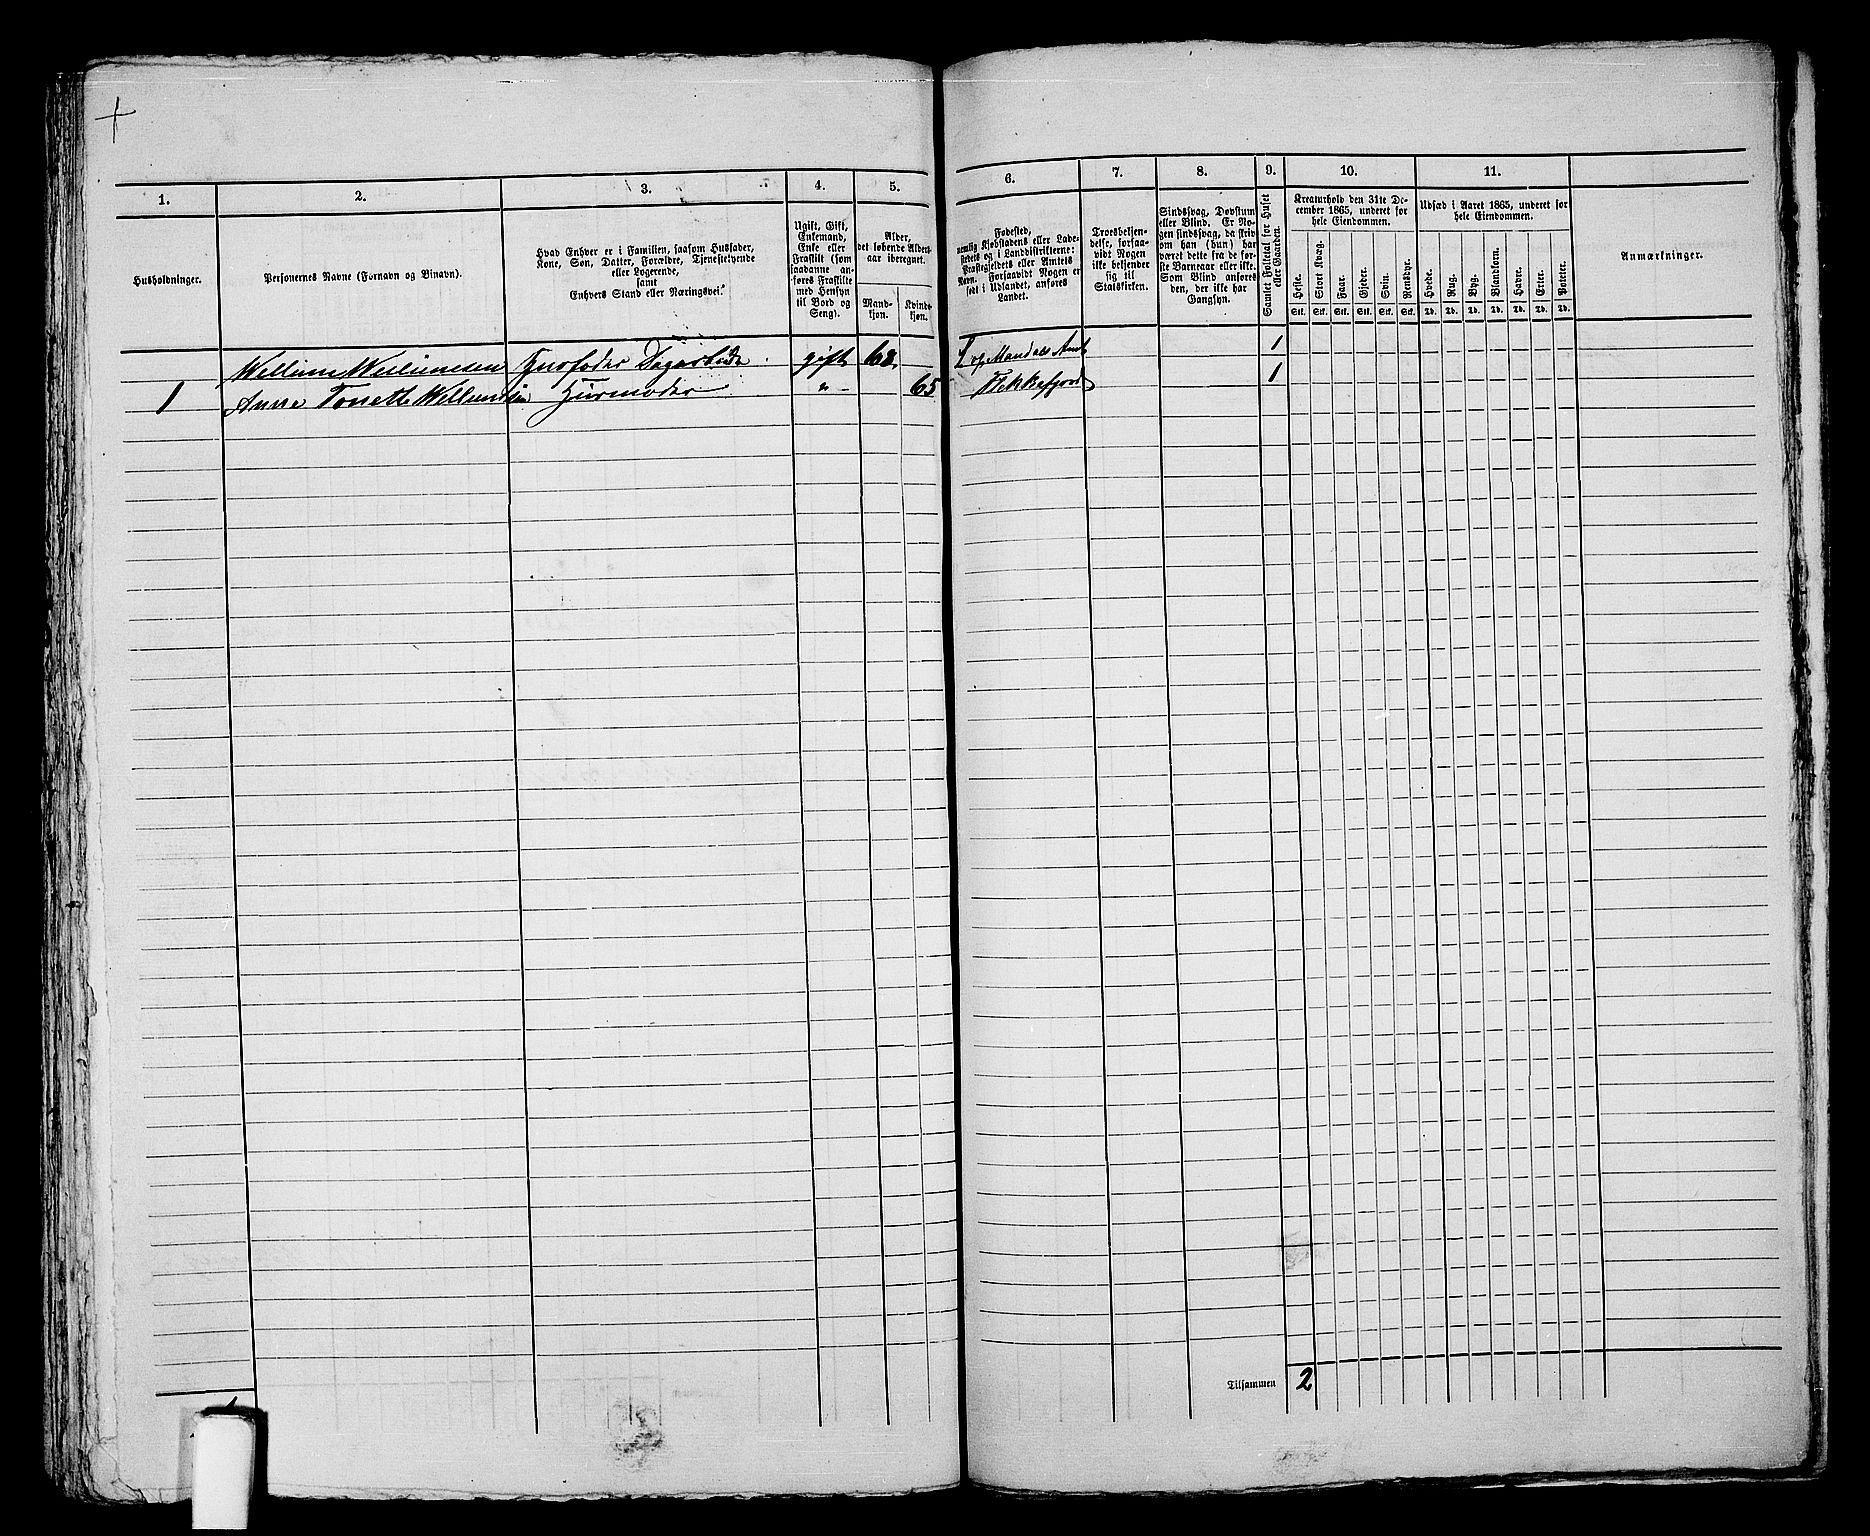 1. 2. 3. 4. 5. 6. 7. 8. 9. 10. 11.
Husholdninger.
Personernes Navne (Fornavn og Binavn).
Hvad Enhver er i Familien, saasom Husfader,
Kone, Søn, Datter, Forældre, Tjenestetyende
eller Logerende,
samt
Enhvers Stand eller Næringsvei.
Ugift, Gift,
Enkemand,
Enke eller
Fraskilt (som
saadanne an-
føres Fraskilte
med Hensyn
til Bord og
Seng).
Alder,
det løbende Alders-
aar iberegnet.
Mand-
kjøn.
Kvinde-
kjøn.
Fødested,
nemlig Kjøbstadens eller Lade-
stedets og i Landdistrikterne:
Præstegjeldets eller Amtets
Navn. Forsaavidt Nogen er
født i Udlandet, anføres
Landet.
Troesbekjen-
delse, forsaa-
vidt Nogen
ikke bekjender
sig til
Statskirken.
Sindssvag, Døvstum
eller Blind. Er No-
gen sindssvag, da skriv
om han (hun) har
været dette fra de før-
ste Barneaar eller ikke.
Som Blind anføres
den, der ikke har
Gangsyn.
Samlet Folketal for Huset
eller Gaarden.
Kreaturhold den 31te De-
cember 1865, underet for
hele Eiendommen.
Heste. Stort Kvæg. Faar. Gjeder. Svin. Rensdyr.
Stk. Stk. Stk. Stk. Stk. Stk.
Udsæd i Aaret 1865, underet for
hele Eiendommen.
Hvede. Rug. Byg. Blandkorn. Havre. Erter. Poteter.
Td. Td. Td. Td. Td. Td. Td.
Anmærkninger.
Husfader gift 68 L og Mandals Amt 1
1 Anne Husmoder " 65 Flekkefjord 1
Tilsammen 2